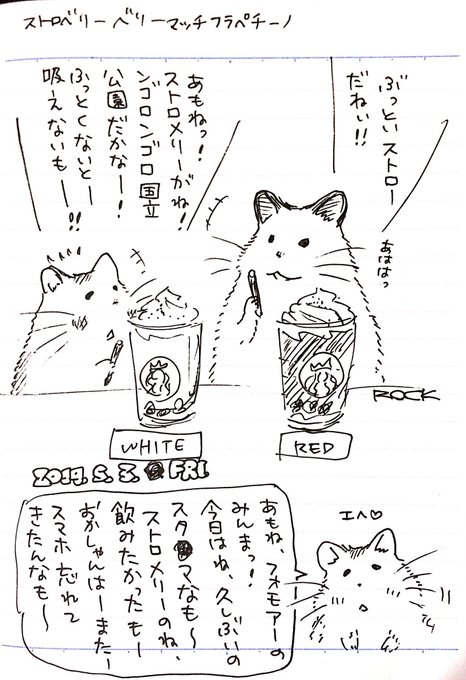 ストロベリー ベリーマッチフラペチーノ
ぶっといストロー
だねぃ!!
あははっ
あもねっ!
ストロメリーがね!
ンゴロンゴロ国立
公園だかな―!
ぶっとくないと―
吸えないも―!!
ROCK
WHITE
RED
2019. 5. 3. FRI
エヘ♡
あもね、フォモアーの
みんまっ!
今日はね、久しぶいの
スタ マなも〜
ストロメリーのね、
飲みたかったも―
おかしゃんは―また―
スマホ忘れて
きたんなも〜